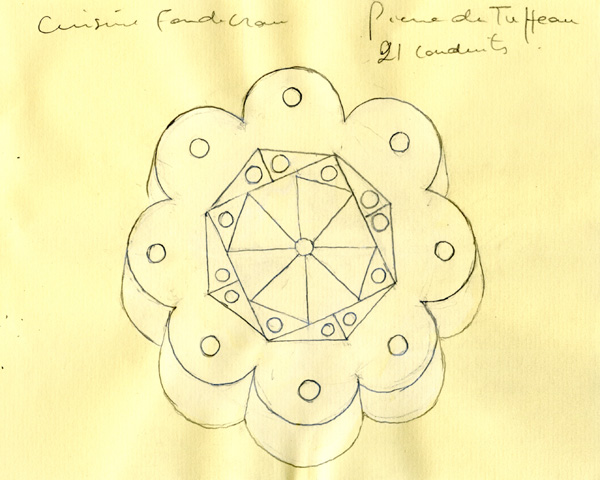 Cuisine Fondecrau
Pierre de Tuffeau
21 conduits.